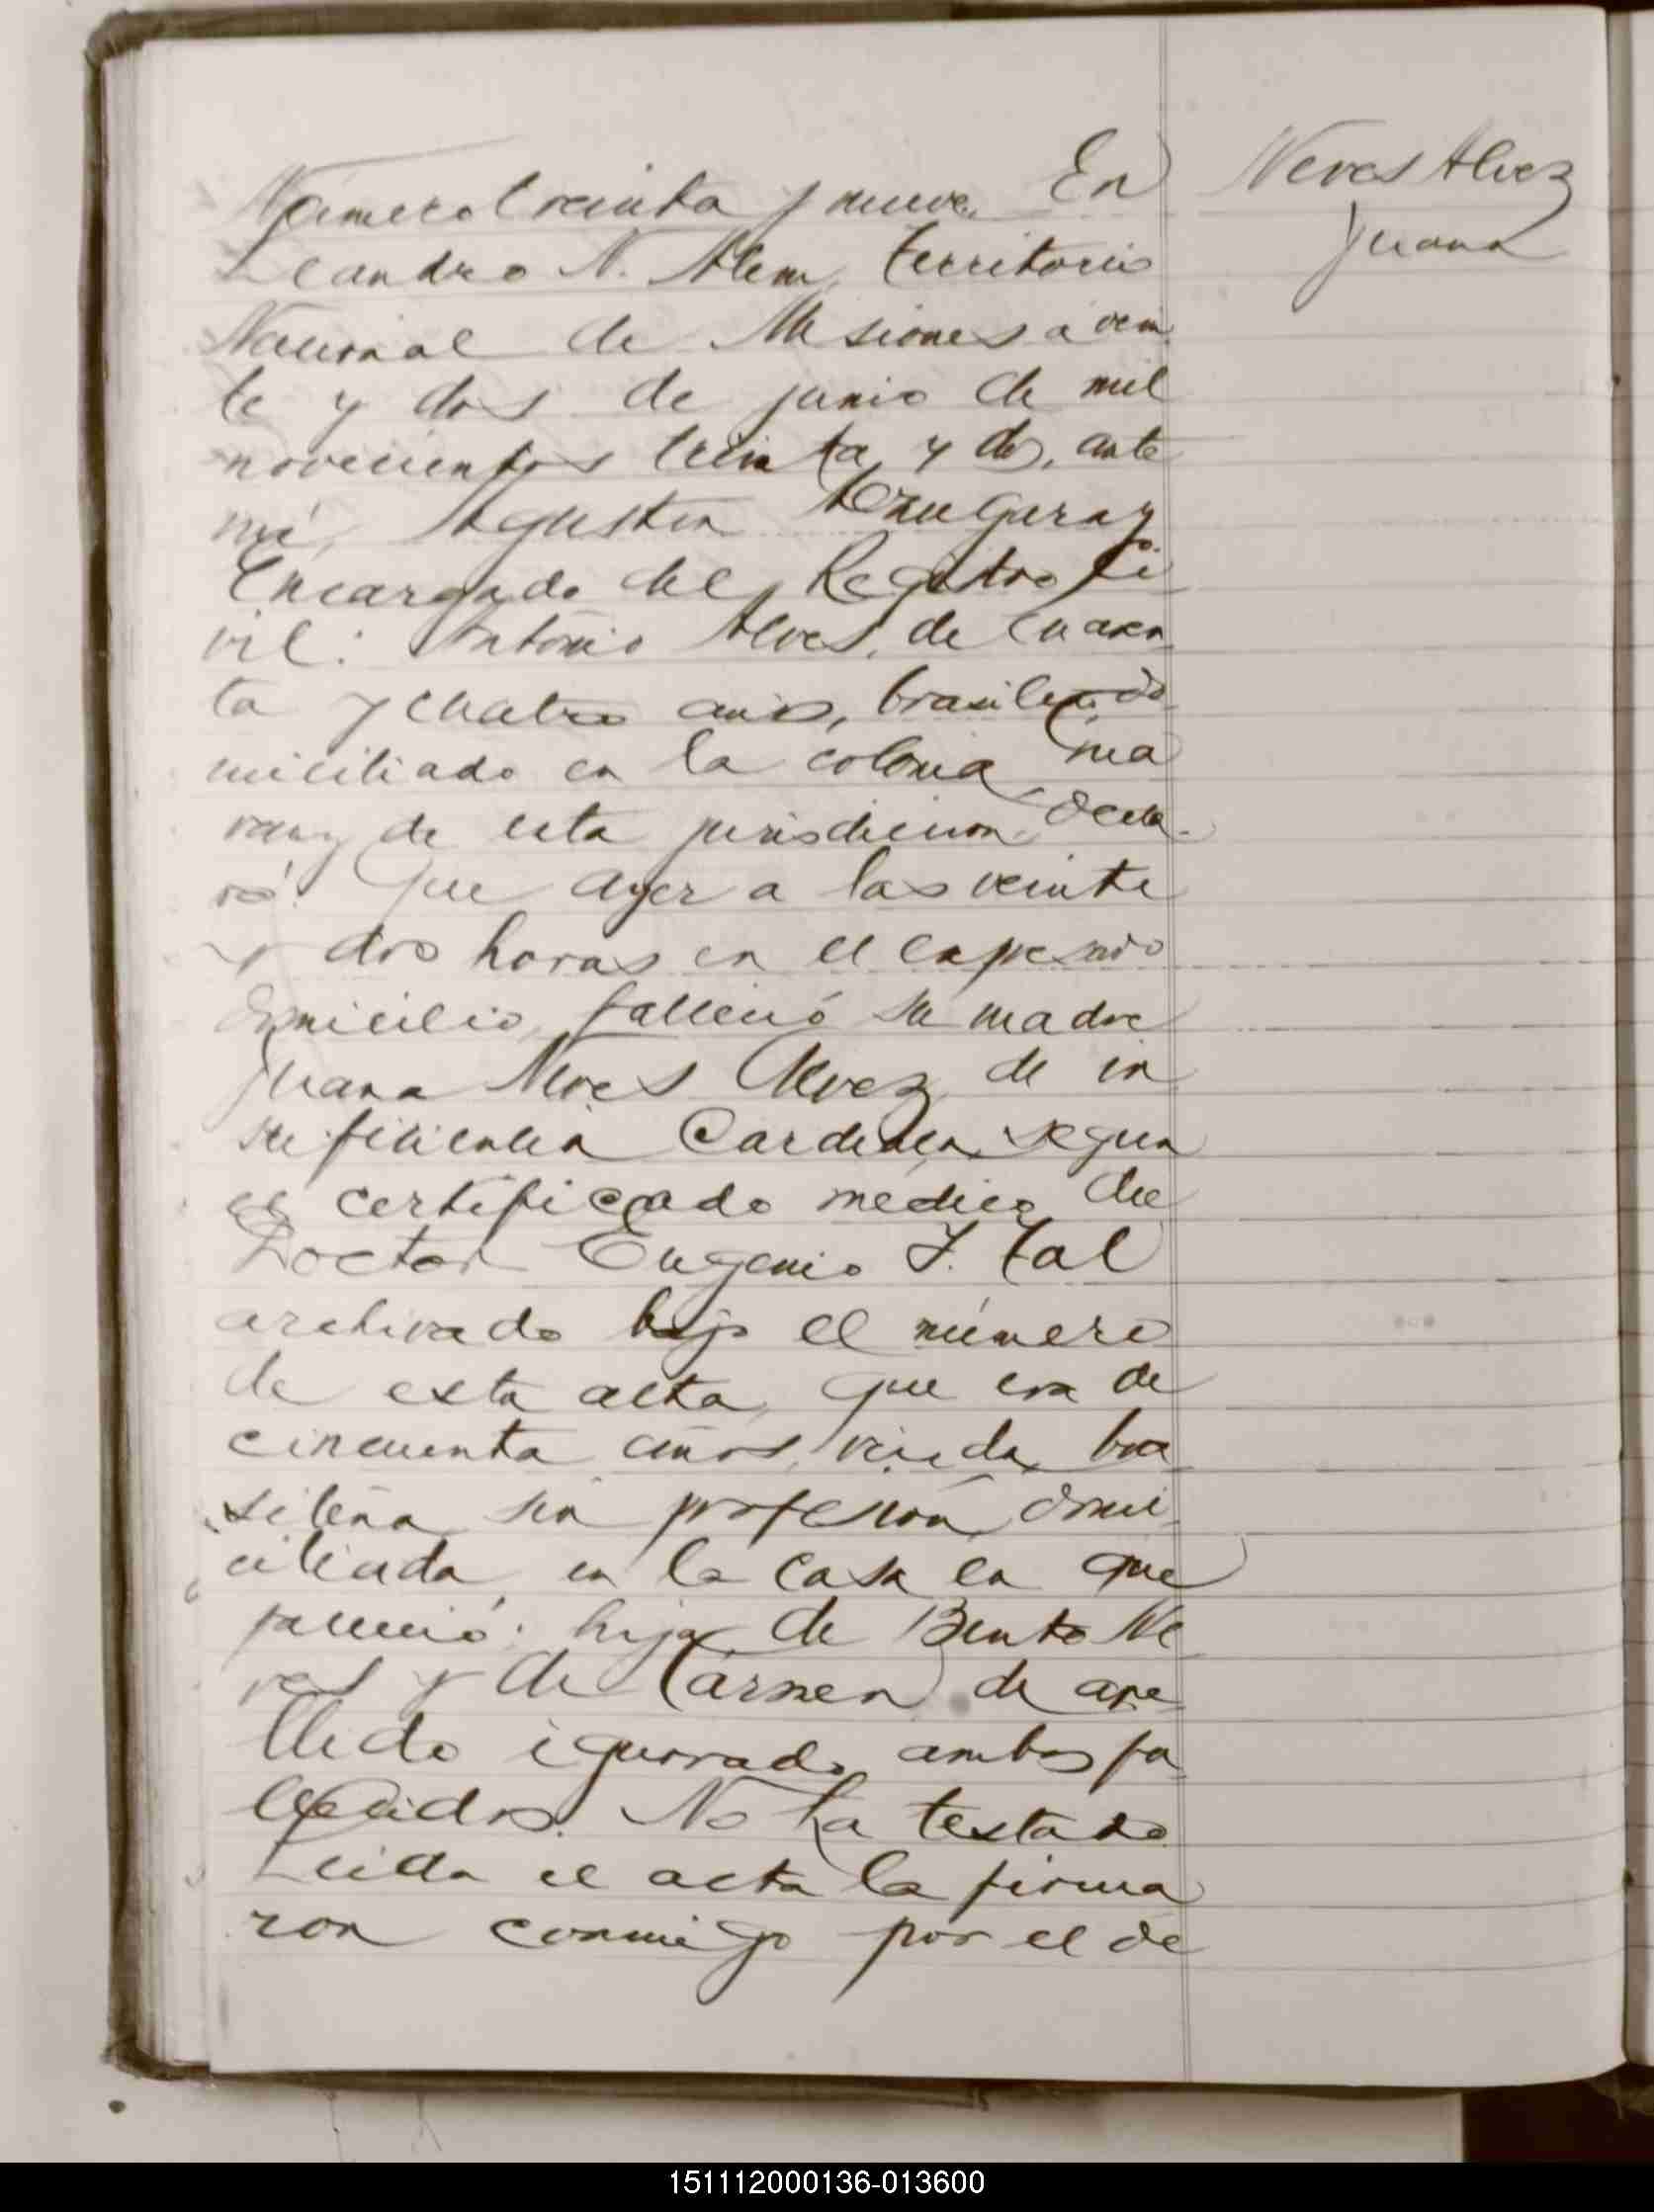 Número treinta y nueve. En
Leandro N. Alem, territorio
Nacional de Misiones a vein
te y dos de junio de mil
novecientos treinta y dos, ante
mí, Agustín
Encargado del Registro Ci
vil: Antonio Alves, de cuaren
ta y cuatro años, brasileño do
miciliado en la colonia
de esta jurisdicion, decla
ró: Que ayer a las veinte
y dos horas en el expresado
domicilio, falleció su madre
Juana Neves Alvez, de in
suficiencia Cardiaca, segun
el certificado medico del
Doctor Eugenio F. Tal
archivado bajo el número
de esta acta, que era de
cincuenta años, viuda, bra
sileña, sin profesión, domi
ciliada, en la casa en que
falleció: hija de Bento Ne
ves y de Carmen de ape
llido ignorado, ambos fa
llecidos. No ha testado
Leida el acta la firma
ron conmigo por el de
Neves Alvez
Juana
151112000136-013600